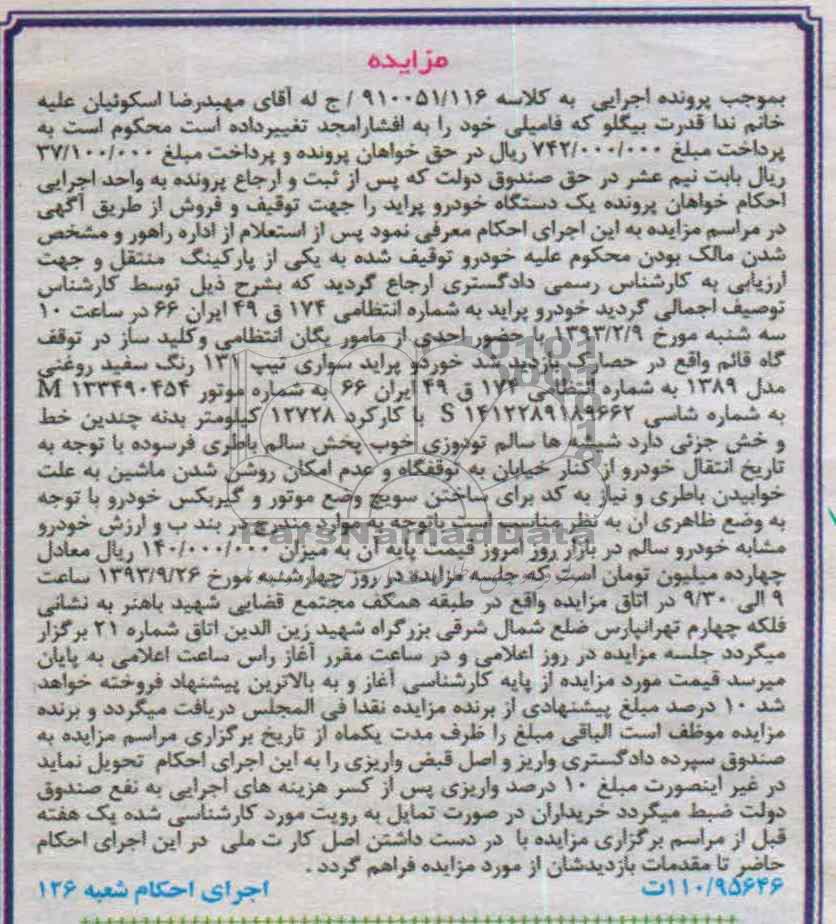 مزایده
بموجب پرونده اجرایی به کلاسه ۹۱۰۰۵۱/۱۱۶ / ج له آقای مهبدرضا اسکوئیان علیه
خانم ندا قدرت بیگلو که فامیلی خود را به افشارامجد تغییرداده است محکوم است به
پرداخت مبلغ ۷۴۲/۰۰۰/۰۰۰ ریال در حق خواهان پرونده و پرداخت مبلغ ۳۷/۱۰۰/۰۰۰
ریال بابت نیم عشر در حق صندوق دولت که پس از ثبت و ارجاع پرونده به واحد اجرایی
احکام خواهان پرونده یک دستگاه خودرو پراید را جهت توقیف و فروش از طریق آگهی
در مراسم مزایده به این اجرای احکام معرفی نمود پس از استعلام از اداره راهور و مشخص
شدن مالک بودن محکوم علیه خودرو توقیف شده به یکی از پارکینگ منتقل و جهت
ارزیابی به کارشناس رسمی دادگستری ارجاع گردید که بشرح ذیل توسط کارشناس
توصیف اجمالی گردید خودرو پراید به شماره انتظامی ۱۷۴ ق ۴۹ ایران ۶۶ در ساعت ۱۰
سه شنبه مورخ ۱۳۹۳/۲/۹ با حضور احدی از مامور یگان انتظامی وکلید ساز در توقف
گاه قائم واقع در حصارک بازدید شد خوردو پراید سواری تیپ ۱۳۱ رنگ سفید روغنی
مدل ۱۳۸۹ به شماره انتظامی ۱۷۴ ق ۴۹ ایران ۶۶ به شماره موتور M ۱۳۳۴۹۰۴۵۴
به شماره شاسی S ۱۴۱۲۲۸۹۱۸۹۶۶۲ با کارکرد ۱۲۷۲۸ کیلومتر بدنه چندین خط
و خش جزئی دارد شیشه ها سالم تودوزی خوب پخش سالم باطری فرسوده با توجه به
تاریخ انتقال خودرو از کنار خیابان به توقفگاه و عدم امکان روشن شدن ماشین به علت
خوابیدن باطری و نیاز به کد برای ساختن سویچ وضع موتور و گیربکس خودرو با توجه
به وضع ظاهری ان به نظر مناسب است باتوجه به موارد مندرج در بند ب و ارزش خودرو
مشابه خودرو سالم در بازار روز امروز قیمت پایه آن به میزان ۱۴۰/۰۰۰/۰۰۰ ریال معادل
چهارده میلیون تومان است که جلسه مزایده در روز چهارشنبه مورخ ۱۳۹۳/۹/۲۶ ساعت
۹ الی ۹/۳۰ در اتاق مزایده واقع در طبقه همکف مجتمع قضایی شهید باهنر به نشانی
فلکه چهارم تهرانپارس ضلع شمال شرقی بزرگراه شهید زین الدین اتاق شماره ۲۱ برگزار
میگردد جلسه مزایده در روز اعلامی و در ساعت مقرر آغاز راس ساعت اعلامی به پایان
میرسد قیمت مورد مزایده از پایه کارشناسی آغاز و به بالاترین پیشنهاد فروخته خواهد
شد ۱۰ درصد مبلغ پیشنهادی از برنده مزایده نقدا فی المجلس دریافت میگردد و برنده
مزایده موظف است الباقی مبلغ را ظرف مدت یکماه از تاریخ برگزاری مراسم مزایده به
صندوق سپرده دادگستری واریز و اصل قبض واریزی را به این اجرای احکام تحویل نماید
در غیر اینصورت مبلغ ۱۰ درصد واریزی پس از کسر هزینه های اجرایی به نفع صندوق
دولت ضبط میگردد خریداران در صورت تمایل به رویت مورد کارشناسی شده یک هفته
قبل از مراسم برگزاری مزایده با در دست داشتن اصل کار ت ملی در این اجرای احکام
حاضر تا مقدمات بازدیدشان از مورد مزایده فراهم گردد .
۱۱۰/۹۵۶۴۶ت اجرای احکام شعبه ۱۲۶
ParsNamadData